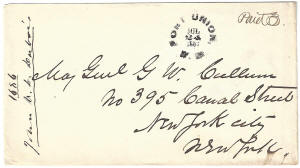 FORT UNION,
JUL
24
N.M.
Paid
Maj Genl G W. Cullum
No 395 Canal Street
New York city
New York.
1886